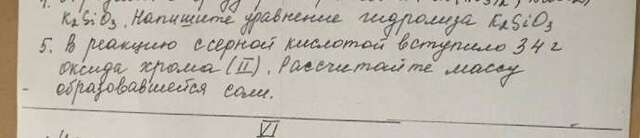 K₂SiO₃. Напишите уравнение гидролиза K₂SiO₃
5. В реакцию с серной кислотой вступило 34 г
оксида хрома (II). Рассчитайте массу
образовавшейся соли.
VI